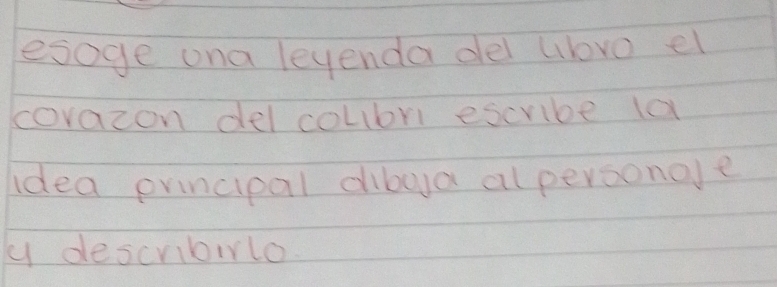 esoge una leyenda del libro el
corazon del colibri escribe la
idea principal dibuja al personaje
y describirlo.